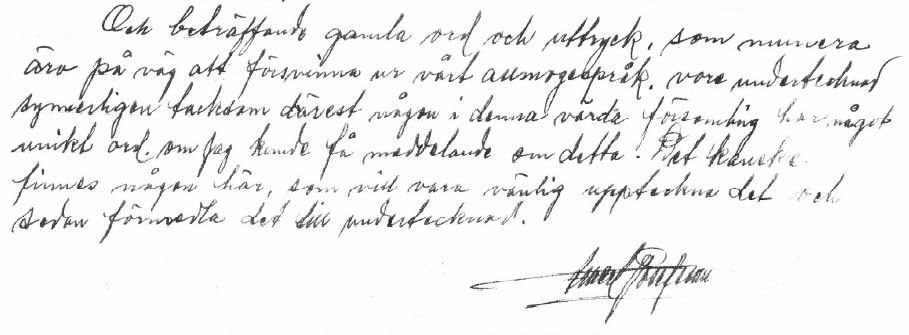 Och beträffande gamla ord och uttryck, som numera
äro på väg att försvinna ur vårt allmogespråk, vore undertecknad
synnerligen tacksam därest någon i denna värda församling har något
unikt ord, om jag kunde få meddelande om detta. Det kanske
finnes någon här, som vill vara vänlig uppteckna det och
sedan förmedla det till undertecknad.